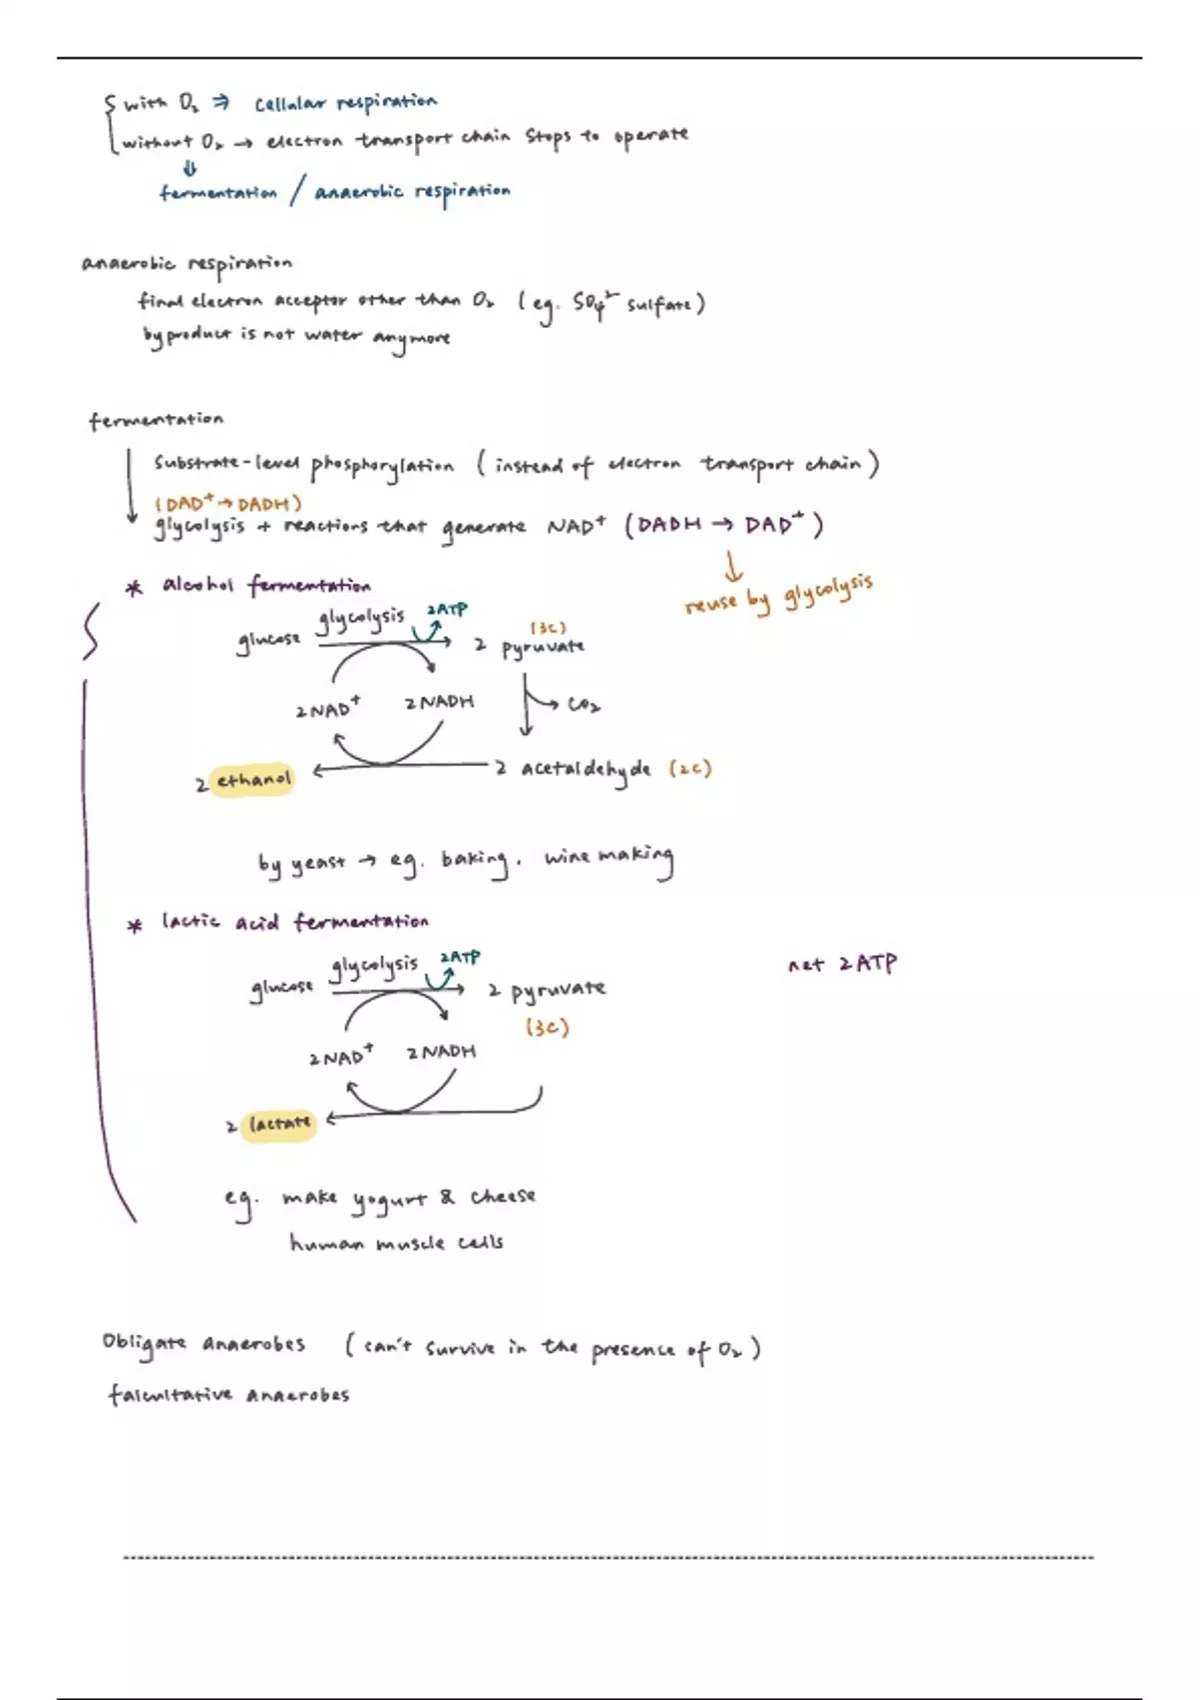 with O₂ ⇒ cellular respiration
without O₂ → electron transport chain stops to operate
⇓
fermentation / anaerobic respiration
anaerobic respiration
final electron acceptor other than O₂ (eg. SO₄²⁻ sulfate)
byproduct is not water anymore
fermentation
substrate-level phosphorylation (instead of electron transport chain)
(DAD⁺→DADH)
glycolysis + reactions that generate NAD⁺ (DADH → DAD⁺)
↓
reuse by glycolysis
* alcohol fermentation
glycolysis 2ATP
(3C)
glucose → 2 pyruvate
2NAD⁺ 2NADH → CO₂
2 ethanol ← 2 acetaldehyde (2C)
by yeast → eg. baking, wine making
* lactic acid fermentation
glycolysis 2ATP
net 2ATP
glucose → 2 pyruvate
(3C)
2NAD⁺ 2NADH
2 lactate ←
eg. make yogurt & cheese
human muscle cells
Obligate anaerobes (can't survive in the presence of O₂)
falcultative anaerobes